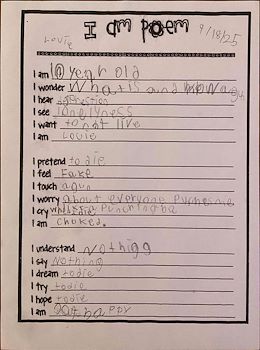 I am poem
Louie 9/18/25
I am 10 year old
I wonder What is and a gun
I hear
I see lonelyness
I want to not live
I am Louie
I pretend to die
I feel Fake
I touch a gun
I worry about everyone
I cry
I am choked.
I understand Nothigg
I say Nothing
I dream to die
I try to die
I hope to die
I am Not happy